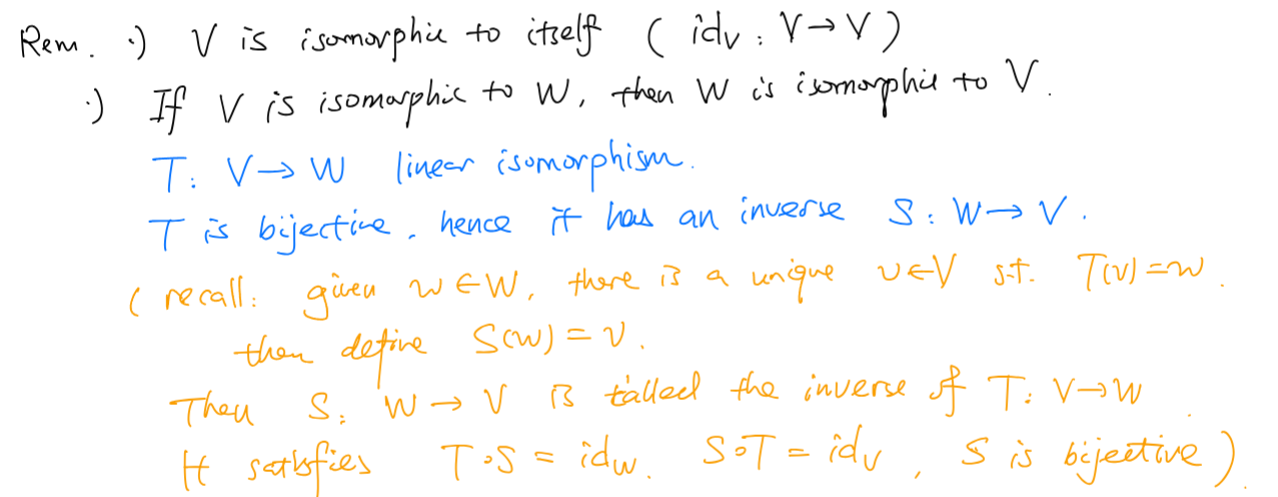 Rem. ·) V is isomorphic to itself ( id_V : V → V )
·) If V is isomorphic to W, then W is isomorphic to V.
T: V → W linear isomorphism.
T is bijective, hence it has an inverse S: W → V.
( recall: given w ∈ W, there is a unique v ∈ V s.t. T(v) = w.
then define S(w) = v.
Then S: W → V is called the inverse of T: V → W.
It satisfies T∘S = id_W. S∘T = id_V, S is bijective )